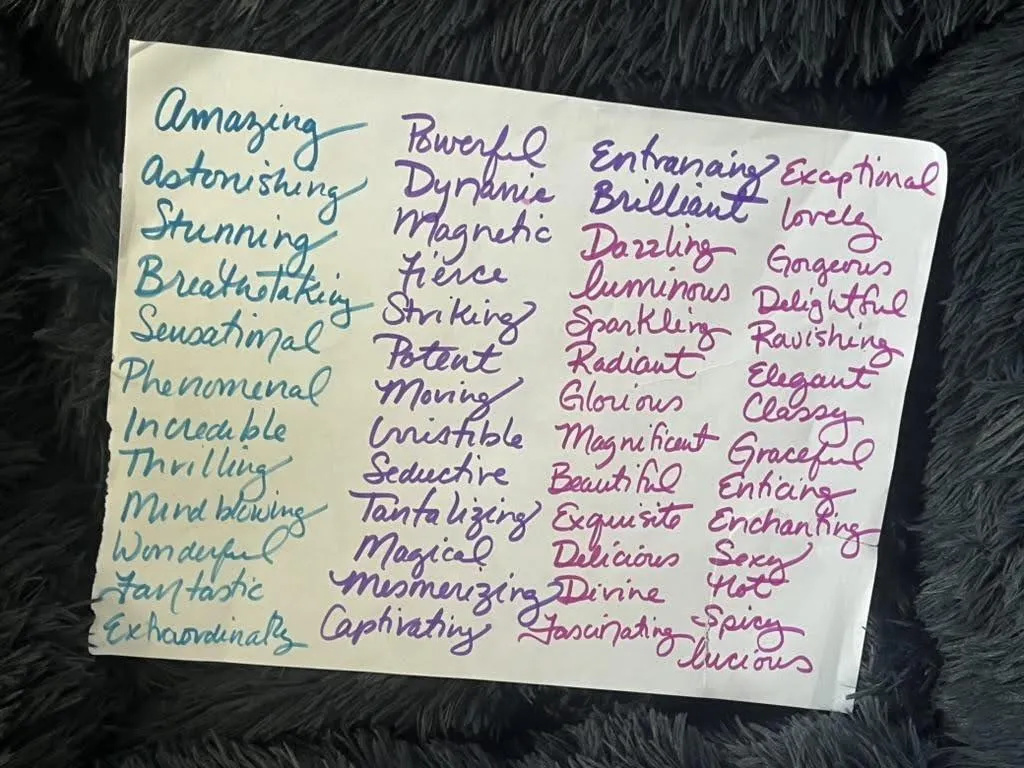 Amazing
Astonishing
Stunning
Breathtaking
Sensational
Phenomenal
Incredible
Thrilling
Mind blowing
Wonderful
Fantastic
Extraordinary
Powerful
Dynamic
Magnetic
Fierce
Striking
Potent
Moving
Irristible
Seductive
Tantalizing
Magical
Mesmerizing
Captivating
Entrancing
Brilliant
Dazzling
luminous
Sparkling
Radiant
Glorious
Magnificent
Beautiful
Exquisite
Delicious
Divine
Fascinating
Exceptional
lovely
Gorgeous
Delightful
Ravishing
Elegant
Classy
Graceful
Enticing
Enchanting
Sexy
Hot
Spicy
lucious